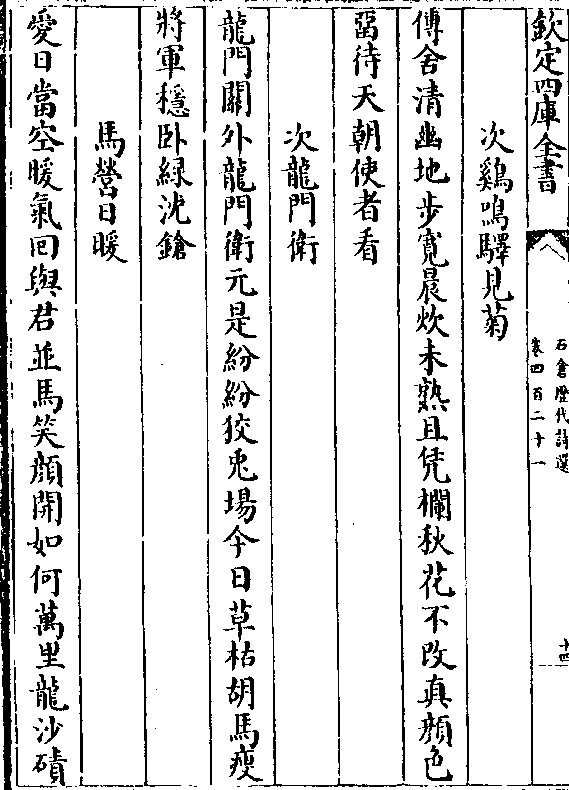 欽定四庫全書
石倉歷代詩選
卷四百二十一
十四
次鷄鳴驛見菊
傳舍清幽地步寛晨炊未熟且凭欄秋花不改真顔色
留待天朝使者看
次龍門衛
龍門關外龍門衛元是紛紛狡兎場今日草枯胡馬瘦
將軍穩卧緑沈鎗
馬營日暖
愛日當空暖氣回與君並馬笑顔開如何萬里龍沙磧